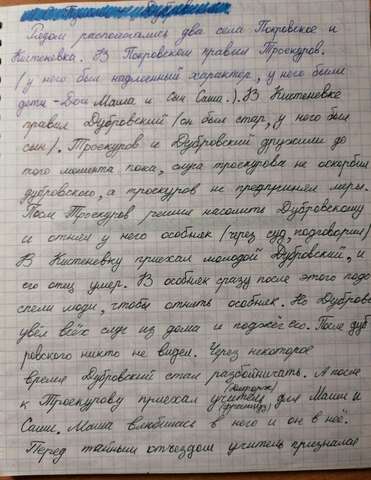 Рядом располагались два села Покровское и
Кистеневка. В Покровском правил Троекуров.
(у него был надменный характер, у него были
дети - Дочь Маша и сын Саша.). В Кистеневке
правил Дубровский (он был стар, у него был
сын). Троекуров и Дубровский дружили до
того момента, пока, слуга троекурова не оскорбил
дубровского, а троекуров не предпринял меры.
После Троекуров решил насолить Дубровскому
и отнял у него особняк (через суд, подговорил)
В Кистеневку приехал молодой Дубровский, и
его отец умер. В особняк сразу после этого подо
спели люди, чтобы отнять особняк. Но Дубровс
увёл всех слуг из дома и поджёг его. После дуб
ровского никто не видел. Через некоторое
время Дубровский стал разбойничать. А после
к Троекурову приехал учитель (француз) для Маши и
Саши. Маша влюбилась в него и он в неё.
Перед тайным отъездом учитель признался